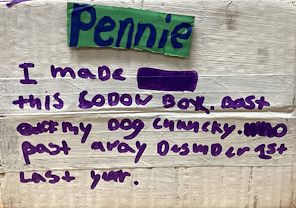 Pennie
I made
this SoDow Box. Bast
my Dog Chuncky.
past array Desmber 1st
Last year.